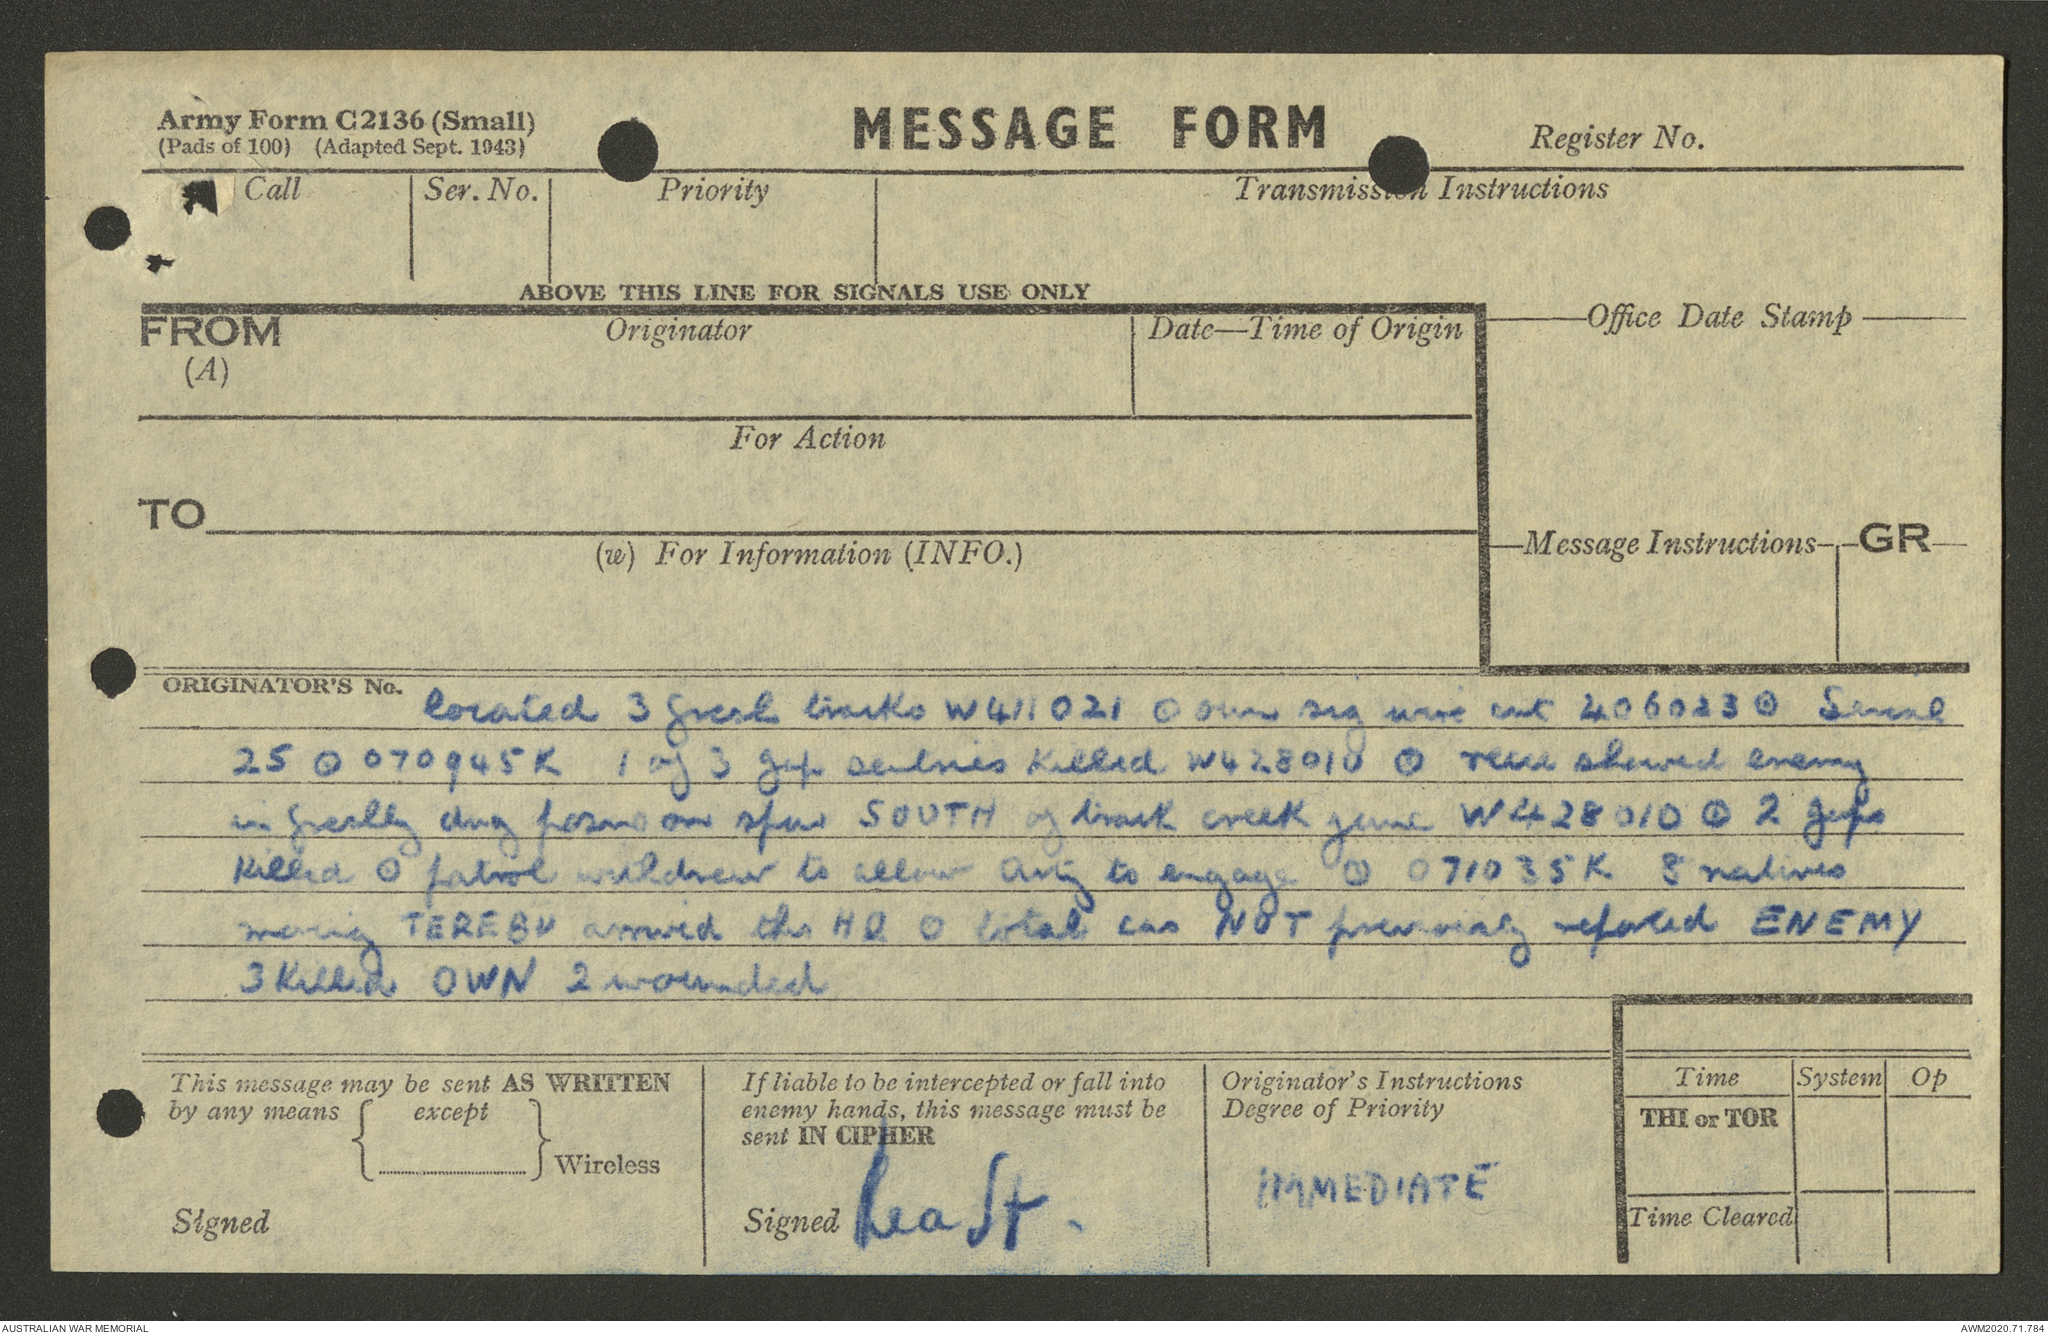 Army Form C2136 (Small)
(Pads of 100) (Adapted Sept. 1943)
MESSAGE FORM
Register No.
Call
Ser. No.
Priority
Transmission Instructions
ABOVE THIS LINE FOR SIGNALS USE ONLY
FROM
(A)
Originator
Date—Time of Origin
Office Date Stamp
For Action
TO
(w) For Information (INFO.)
Message Instructions
GR
ORIGINATOR'S No.
located 3 fresh tracks W411021 ⊙ own sig wire cut 406023 ⊙ Serial
25 ⊙ 070945K 1 of 3 jap sentries killed W428010 ⊙ recce showed enemy
in freshly dug posns on spur SOUTH of track creek junc W428010 ⊙ 2 japs
killed ⊙ patrol withdrew to allow Arty to engage ⊙ 071035K 8 natives
TEREBU arrived this HQ ⊙ total cas NOT previously reported ENEMY
3 killed OWN 2 wounded
This message may be sent AS WRITTEN
by any means except
Wireless
Signed
If liable to be intercepted or fall into
enemy hands, this message must be
sent IN CIPHER
Signed
Originator's Instructions
Degree of Priority
IMMEDIATE
Time
System
Op
THI or TOR
Time Cleared
AUSTRALIAN WAR MEMORIAL
AWM2020.71.784